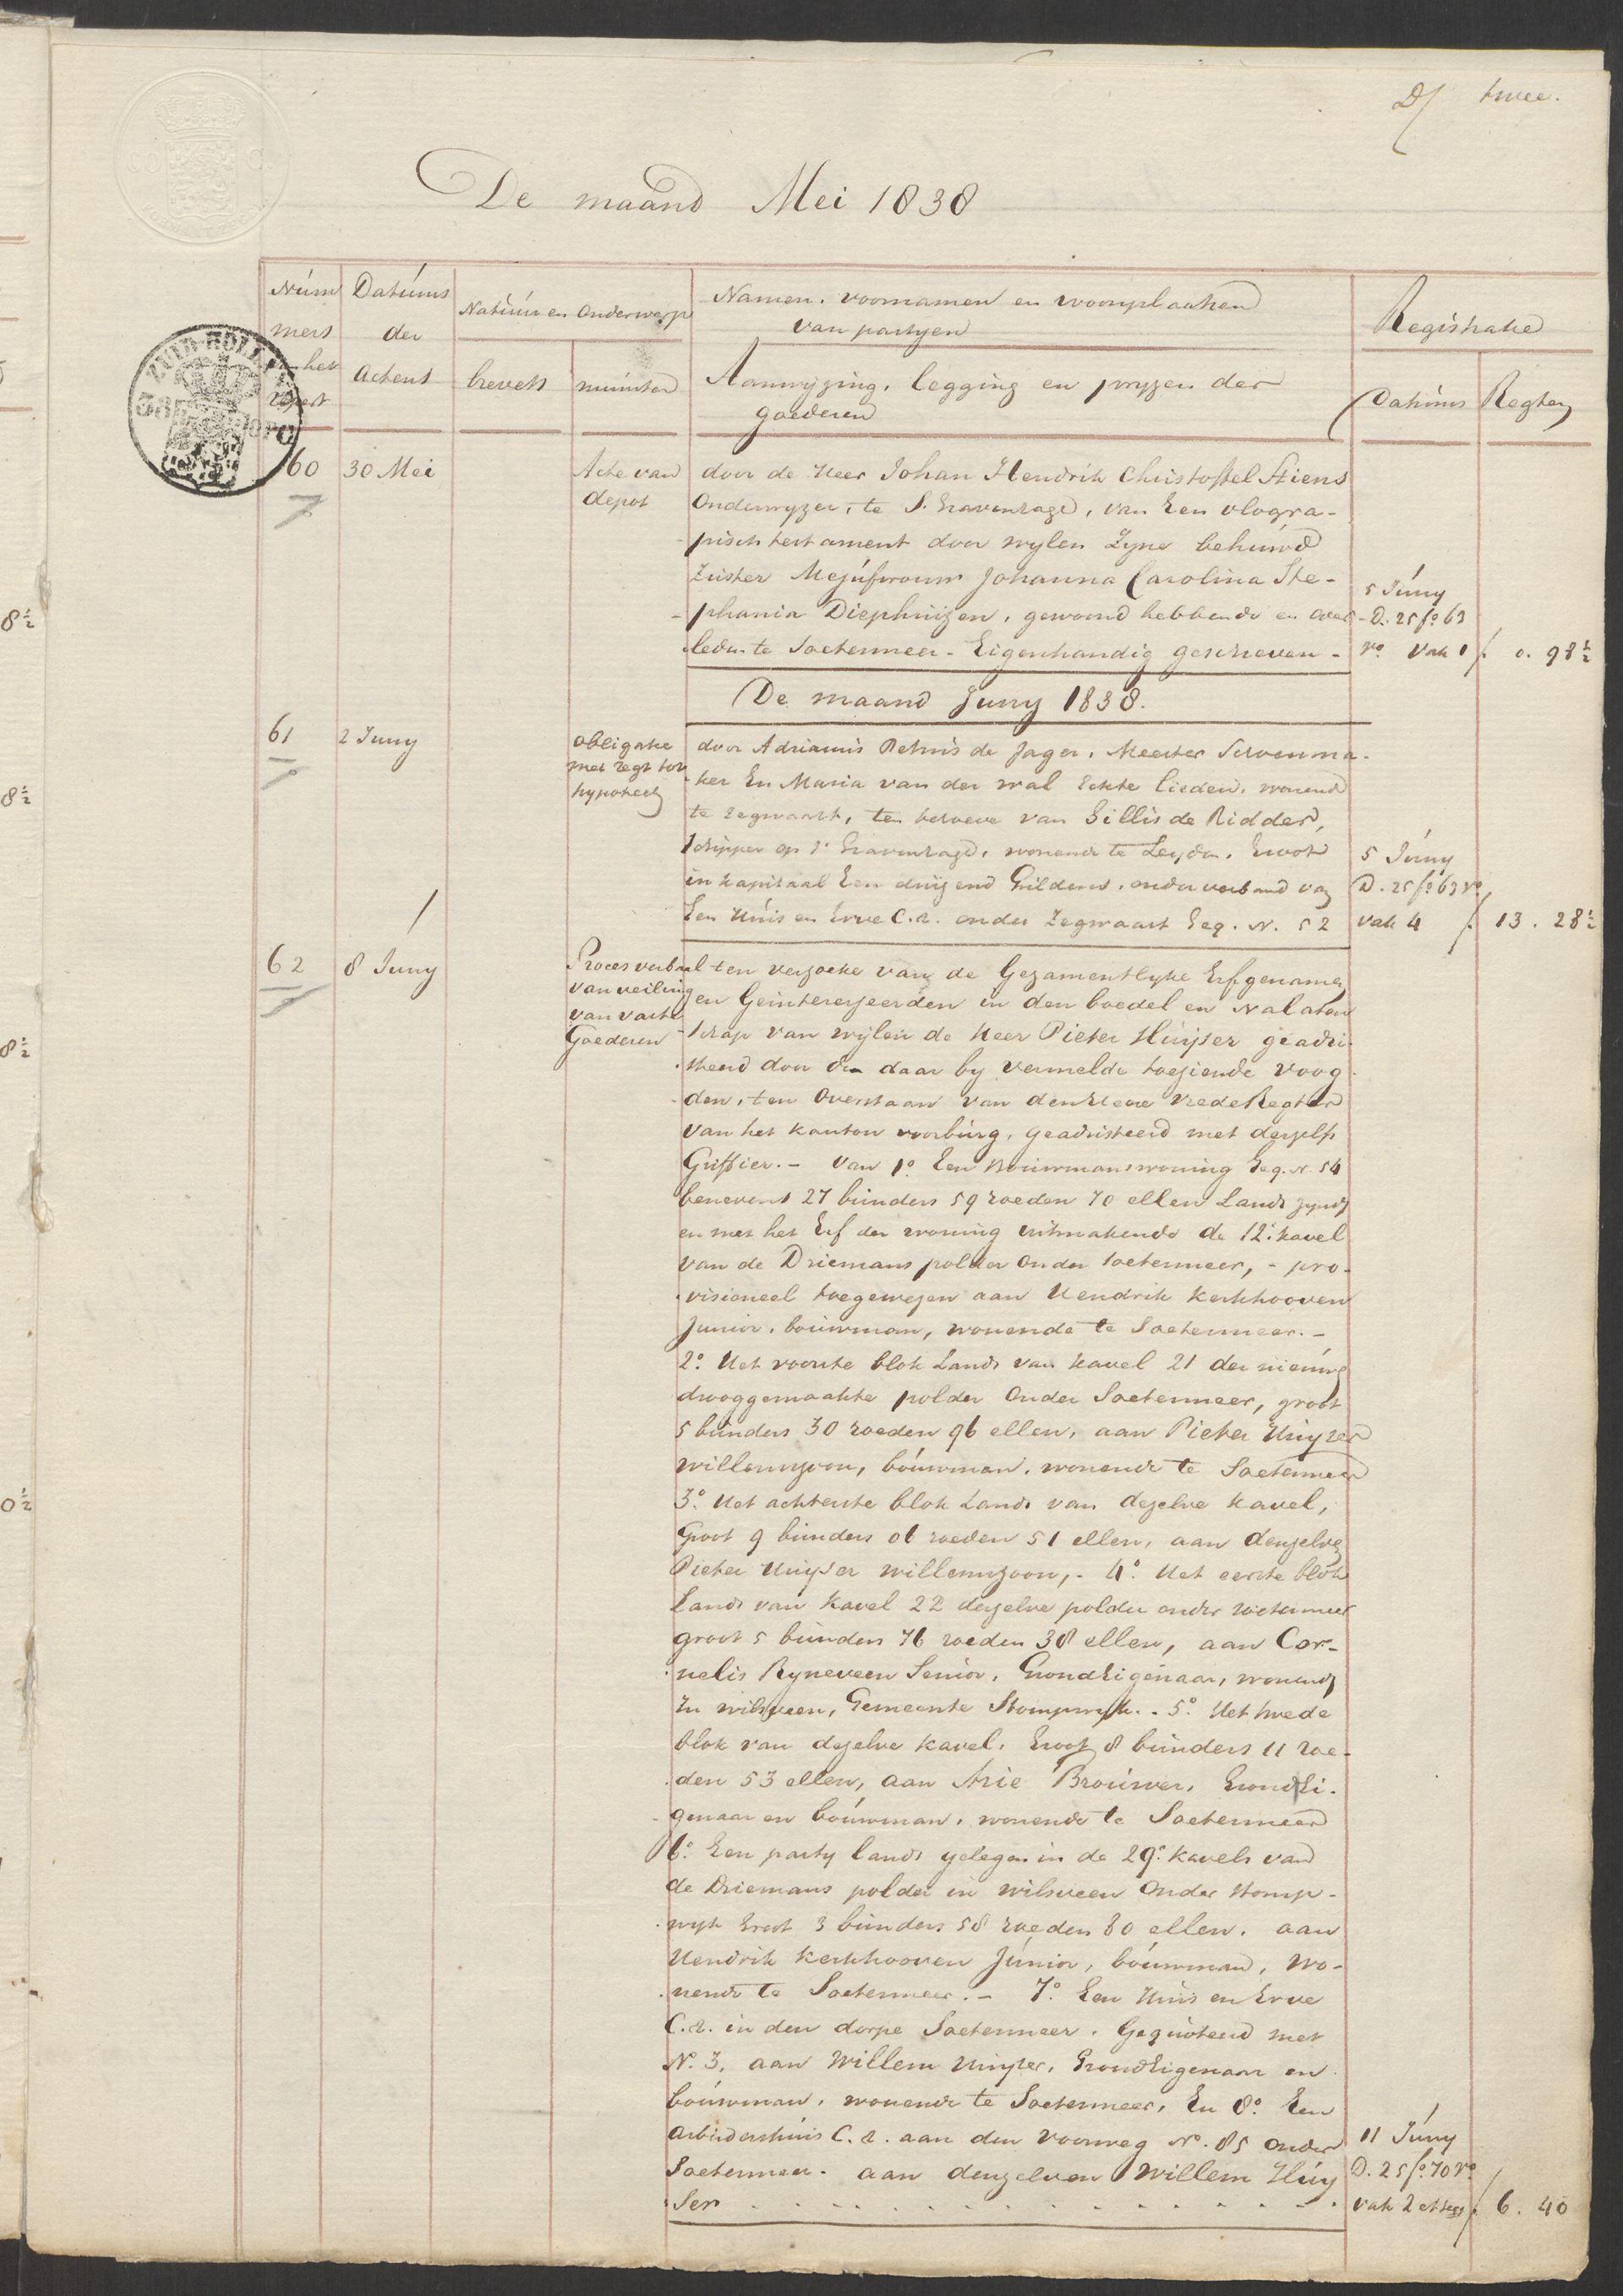 twee.
De maand Mei 1838
Núm
mers
het
repert
Datúms
der
Actens
Natúúr en Onderwerp
brevets
minúten
Namen, voornamen en woonplaatsen
van partyen
Aanwyzing, legging en pryzen der
goederen
Registratie
Datúms
Regten
60
30 Mei
Acte van
depot
door de Heer Johan Hendrik Christoffel Stiens
Onderwyzer, te S. Gravenhage, van Een ologra-
-phisch testament door wylen Zyne behúwd
Zúster Mejúfvrouw Johanna Carolina Ste-
-phania Diephuizen, gewoond hebbende en over-
leden te Soetermeer - Eigenhandig geschreven -
5 Júny
D. 25 fo. 63
vo. Vak 1
f. 0. 98½
De maand Juny 1838.
61
2 Juny
Obligatie
met regt tot
hypotheek
door Adrianús Petrús de Jager, Meester Schoenma-
-ker En Maria van der Wal Echte lieden, wonende
te Zegwaart, ten behoeve van Gillis de Ridder,
Schipper op S' Gravenhage, wonende te Leyden, Groot
in kapitaal Een duyzend Guldens, onder verband van
Een Húis en Erve C.A. onder Zegwaart Geq. N. 52
5 Júny
D. 25 fo. 63 vo
vak 4
f. 13. 28½
62
8 Juny
Proces verbaal
van veiling
van vaste
Goederen
ten verzoeke van de Gezamentlyke Erfgenamen
en Geinteresseerden in den boedel en Nalaten
-schap van wylen de Heer Pieter Húyser geadsi-
-steerd door den daar by vermelde toeziende voog-
-den, ten Overstaan van den Heere Vrede Regter
van het kanton voorbúrg, geadsisteerd met deszelfs
Griffier. - Van 1o. Een Bouwmanswoning Geq. N. 54
benevens 27 bunders 59 roeden 70 ellen Lands zynde
en met het Erf der woning uitmakende de 12e. kavel
van de Driemans polder Onder Soetermeer, - pro-
-visioneel toegewezen aan Hendrik Kerkhooven
Junior, bouwman, wonende te Soetermeer. -
2o. Het voorste blok Lands van kavel 21 der nieuwe
drooggemaakte polder Onder Soetermeer, groot
5 bunders 30 roeden 96 ellen, aan Pieter Huyser
Willemszoon, bouwman, wonende te Soetermeer
3o. Het achterste blok Lands van dezelve kavel,
Groot 9 bunders 06 roeden 51 ellen, aan denzelven
Pieter Huyser Willemszoon, - 4o. Het eerste blok
Lands van kavel 22 dezelve polder onder Soetermeer
groot 5 bunders 76 roeden 38 ellen, aan Cor-
-nelis Ryneveen Senior, Grond Eigenaar, wonende
In Wilsveen, Gemeente Stompwyk. - 5o. Het tweede
blok van dezelve kavel, Groot 8 bunders 11 roe-
-den 53 ellen, aan Arie Brouwer, Grond Ei-
-genaar en bouwman, wonende te Soetermeer
6o. Een party lands gelegen in de 29e. kavels van
de Driemans polder in Wilsveen Onder Stomp-
-wyk Groot 3 bunders 58 roeden 80 ellen, aan
Hendrik Kerkhooven Junior, bouwman, wo-
-nende te Soetermeer. - 7o. Een Huis en Erve
C.A. in den dorpe Soetermeer, Gequoteerd met
No. 3, aan Willem Huyser, Grond Eigenaar en
bouwman, wonende te Soetermeer, En 8o. Een
Arbeidershuis C.A. aan den voorweg No. 85 Onder
Soetermeer, aan denzelven Willem Huy
-ser
11 Júny
D. 25 fo. 70 vo
vak 2 et seqq
f. 6. 40